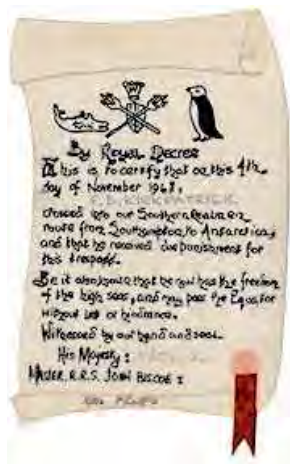 By Royal Decree
This is to certify that on this 4th
day of November 1968,
KIRKPATRICK
crossed into our Southern Realm en
route from Southampton to Antarctica,
and that he received due punishment for
this trespass.
Be it also known that he now has the freedom
of the high seas, and may pass the Equator
without let or hindrance.
Witnessed by our hand and seal.
His Majesty:
MASTER, R.R.S. JOHN BISCOE: